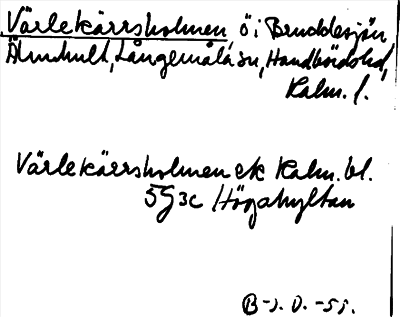 Värlekärrsholmen, ö i Bruddesjön,
Älmhult, Långemåla sn, Handbörds hd,
Kalm. l.
Värlekärrsholmen ek Kalm. bl.
5G3c Högahyltan
B-J. O. -55.